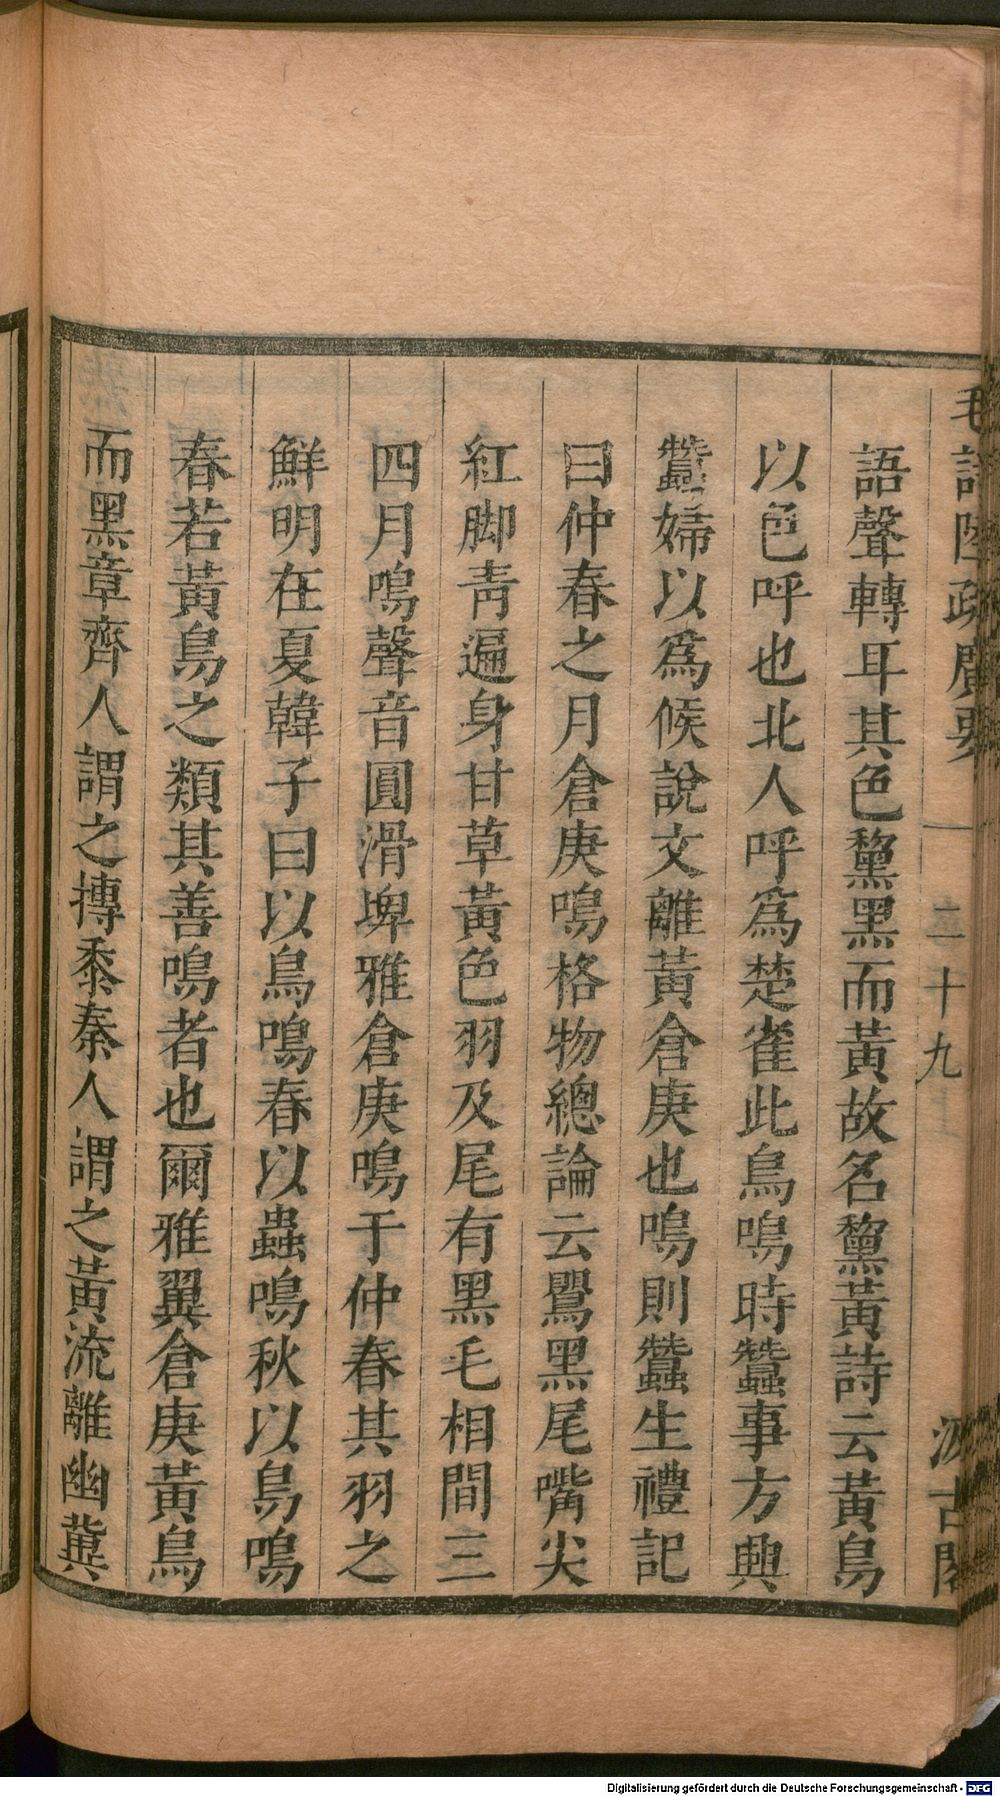 毛詩陸疏廣要
二十九
汲古閣
語聲轉耳其色黧黑而黃故名黧黃詩云黃鳥
以色呼也北人呼爲楚雀此鳥鳴時蠶事方興
蠶婦以爲候說文離黃倉庚也鳴則蠶生禮記
曰仲春之月倉庚鳴格物總論云鸎黑尾嘴尖
紅脚靑遍身甘草黃色羽及尾有黑毛相間三
四月鳴聲音圓滑埤雅倉庚鳴于仲春其羽之
鮮明在夏韓子曰以鳥鳴春以蟲鳴秋以鳥鳴
春若黃鳥之類其善鳴者也爾雅翼倉庚黃鳥
而黑章齊人謂之摶黍秦人謂之黃流離幽冀
Digitalisierung gefördert durch die Deutsche Forschungsgemeinschaft - DFG